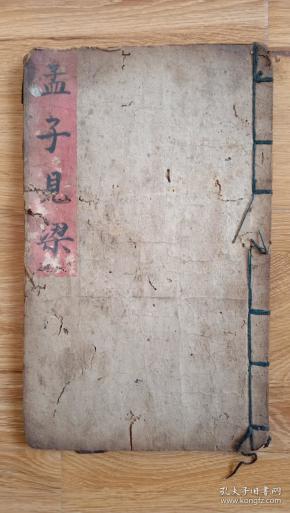 孟子見梁
孔夫子旧书网